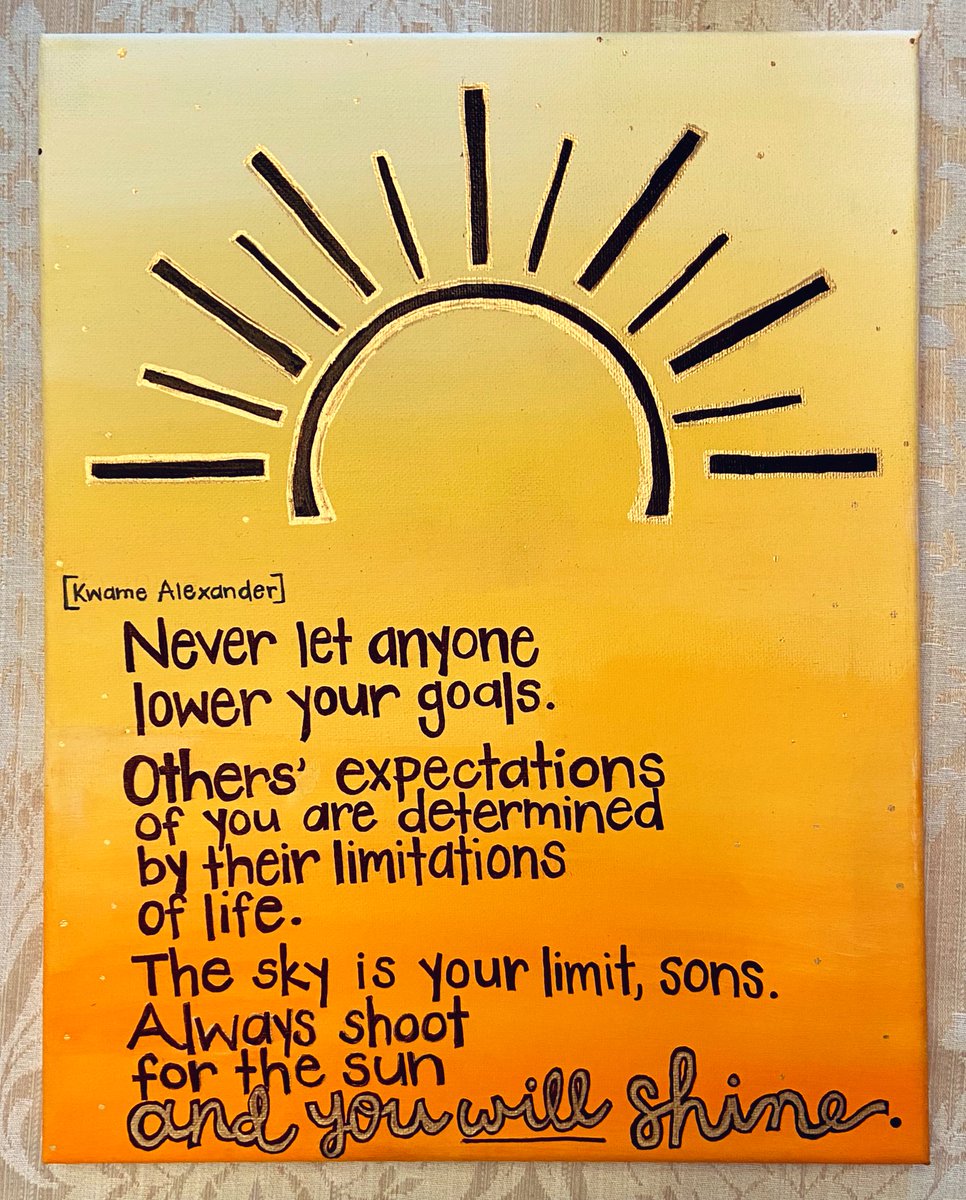 [Kwame Alexander]
Never let anyone
lower your goals.
Others' expectations
of you are determined
by their limitations
of life.
The sky is your limit, sons.
Always shoot
for the sun
and you will shine.